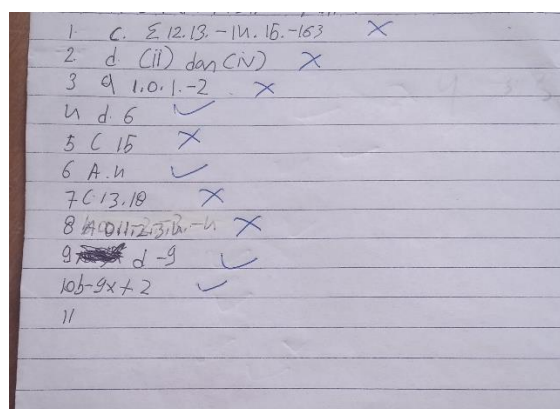 1. c. Σ 12.13.-14.15.-163 ✗
2. d (ii) dan (iv) ✗
3 a 1.0.1.-2 ✗
4 d. 6 ✓
5 C 15 ✗
6 A.4 ✓
7 C.13.18 ✗
8 ✗
9 d -9 ✓
10 b -9x + 2 ✓
11